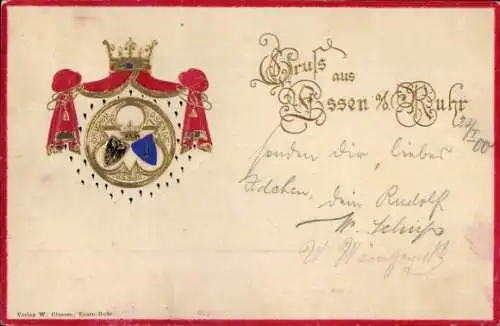 Gruss aus
Essen a/ Ruhr
23/I 00
senden dir, lieber
Edchen, dein Rudolf
W. Schiffs
W.
Verlag W. Classen, Essen-Ruhr.